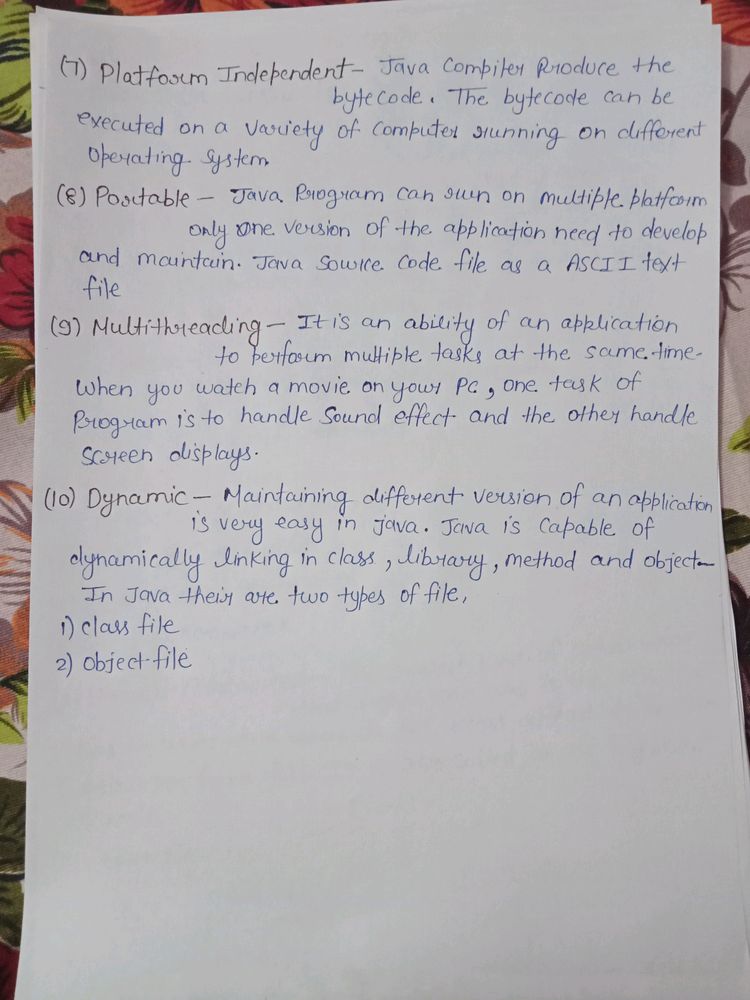 (7) Platform Independent - Java Compiler Produce the
bytecode. The bytecode can be
executed on a variety of Computer running on different
Operating System
(8) Portable - Java Program can run on multiple platform
only one version of the application need to develop
and maintain. Java Source Code file as a ASCII text
file
(9) Multithreading - It is an ability of an application
to perform multiple tasks at the same time-
When you watch a movie on your PC, one task of
Program is to handle Sound effect and the other handle
Screen displays.
(10) Dynamic - Maintaining different version of an application
is very easy in java. Java is Capable of
dynamically linking in class, library, method and object-
In Java their are two types of file,
1) class file
2) object file